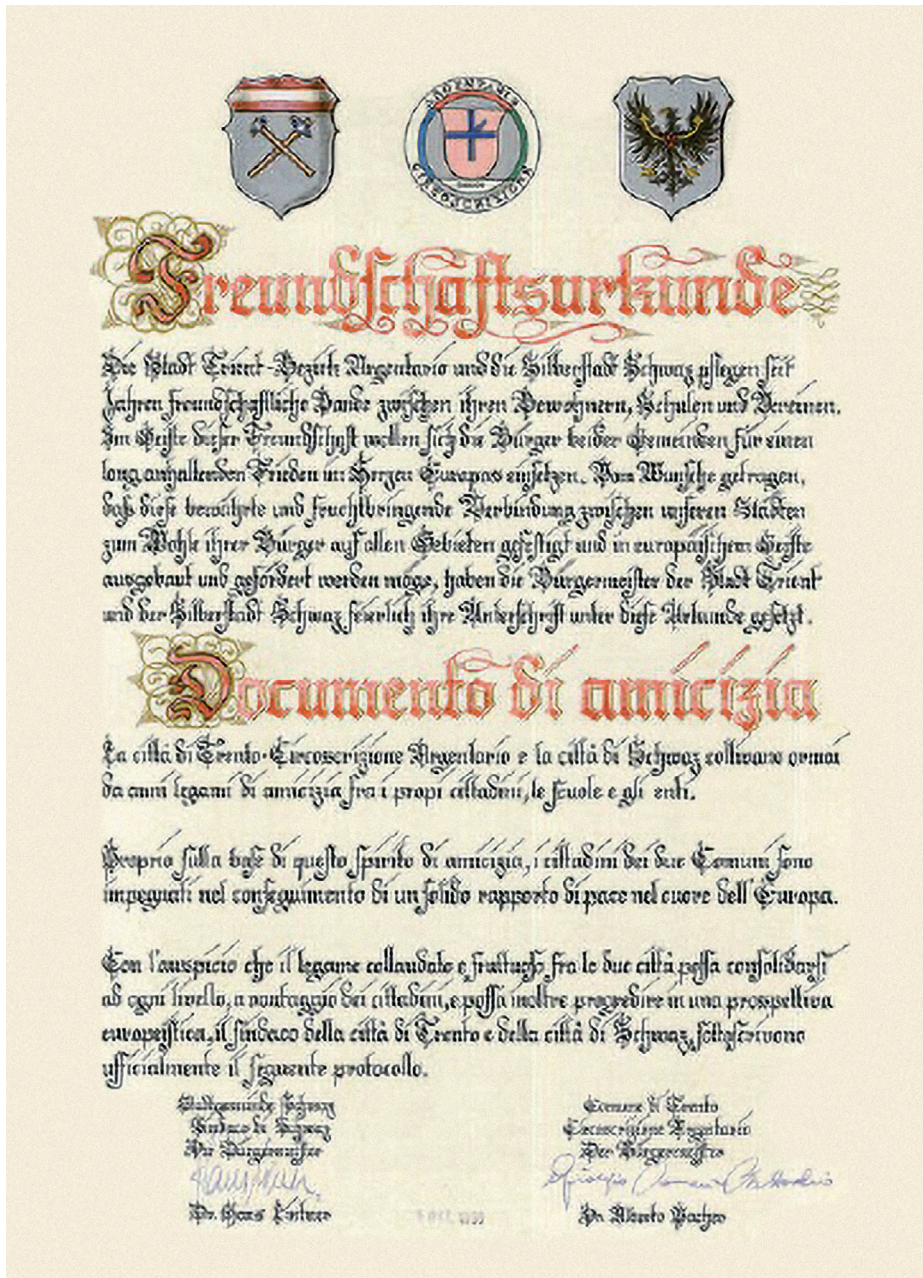 ARGENTARIO
CIRCOSCRIZIONE
Freundschaftsurkunde
Die Stadt Trient-Bezirk Argentario und die Silberstadt Schwaz pflegen seit
Jahren freundschaftliche Bande zwischen ihren Bewohnern, Schulen und Vereinen.
Im Geiste dieser Freundschaft wollen sich die Bürger beider Gemeinden für einen
lang anhaltenden Frieden im Herzen Europas einsetzen. Vom Wunsche getragen,
daß diese bewährte und fruchtbringende Verbindung zwischen unseren Städten
zum Wohle ihrer Bürger auf allen Gebieten gefestigt und in europäischem Geiste
ausgebaut und gefördert werden möge, haben die Bürgermeister der Stadt Trient
und der Silberstadt Schwaz feierlich ihre Unterschrift unter diese Urkunde gesetzt.
Documento di amicizia
La città di Trento-Circoscrizione Argentario e la città di Schwaz coltivano ormai
da anni legami di amicizia fra i propi cittadini, le scuole e gli enti.
Proprio sulla base di questo spirito di amicizia, i cittadini dei due Comuni sono
impegnati nel conseguimento di un solido rapporto di pace nel cuore dell'Europa.
Con l'auspicio che il legame collaudato e fruttuoso fra le due città possa consolidarsi
ad ogni livello, a vantaggio dei cittadini, e possa inoltre progredire in una prospettiva
europeistica, il sindaco della città di Trento e della città di Schwaz, sottoscrivono
ufficialmente il seguente protocollo.
Stadtgemeinde Schwaz
Sindaco di Schwaz
Der Bürgermeister
Dr. Hans Lintner
Comune di Trento
Circoscrizione Argentario
Der Bürgermeister
Dr. Alberto Pacher